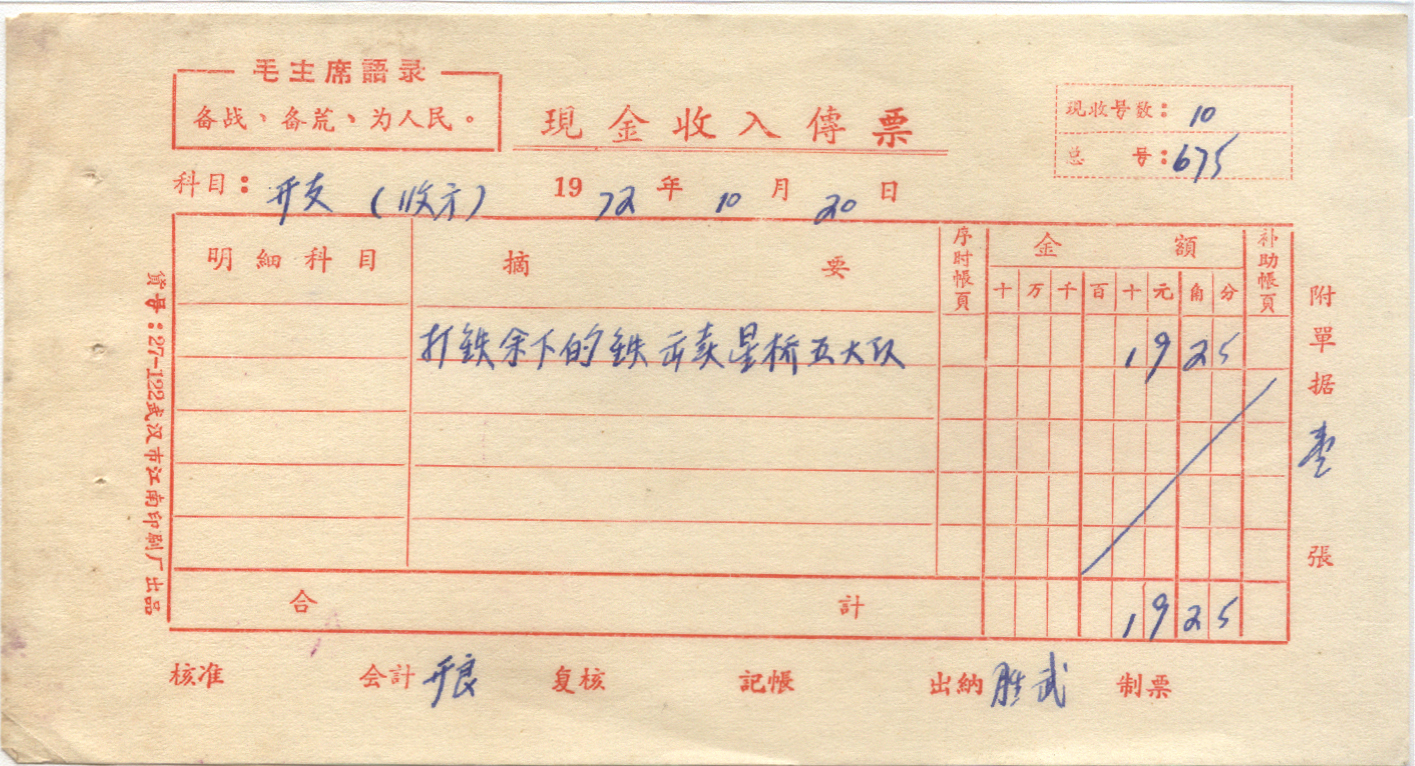 毛主席語录
备战、备荒、为人民。
現金收入傳票
現收号数：10
总号：675
科目：开支（收方） 1972年10月20日
明細科目 摘要 序时帳頁 金額 补助帳頁
十万千百十元角分
打鉄余下的鉄 卖星桥五大队 1925
合計 1925
附單据壹張
货号：27-122武汉市江南印刷厂出品
核准 会計 开良 复核 記帳 出納 胜武 制票